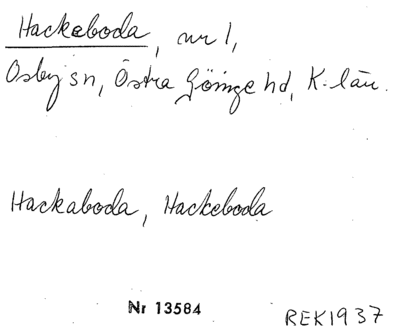 Hackeboda, nr 1,
Osby sn, Östra Göinge hd, K. län.
Hackaboda, Hackeboda
Nr 13584
REK1937